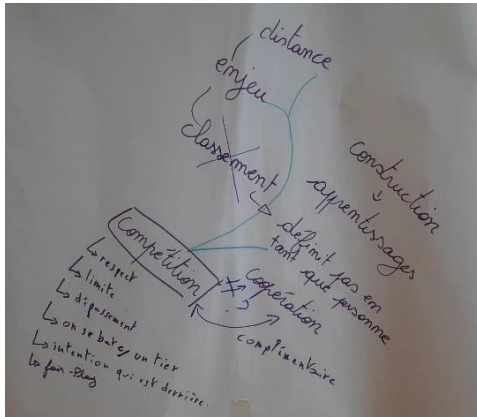 distance
enjeu
classement
construction
apprentissages
définit pas en
tant que personne
Compétition
≠
?
coopération
complémentaire
respect
limite
dépassement
on se bat c/ un tier
intention qui est derrière.
fair-Play